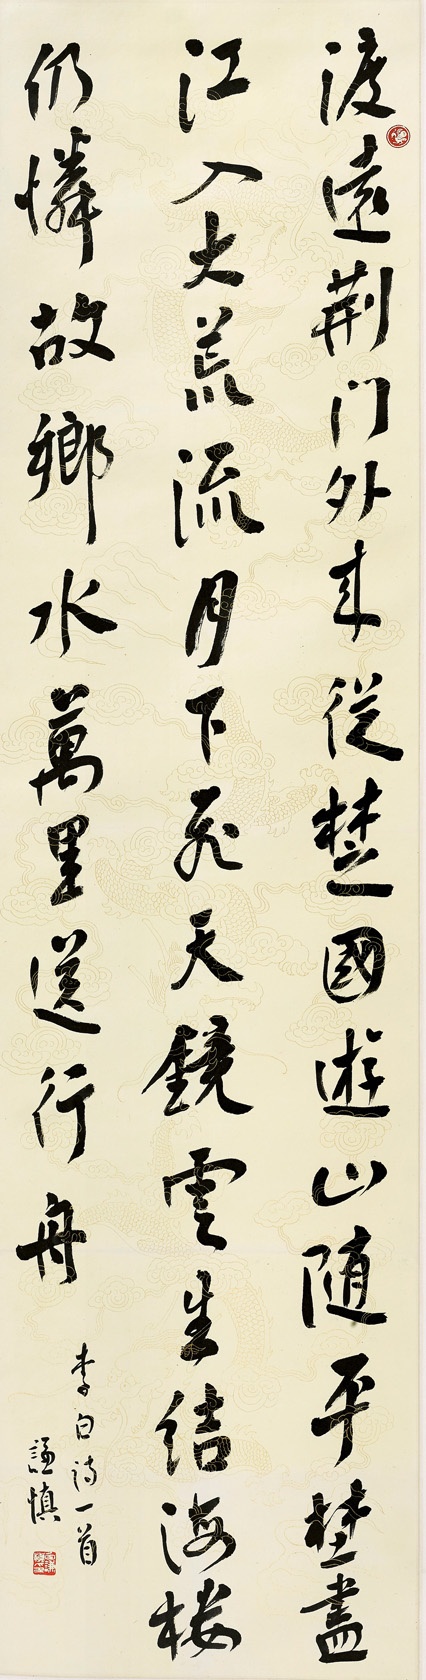 渡遠荆門外来從楚國遊山随平埜盡
江入大荒流月下飛天鏡雲生結海楼
仍憐故鄉水萬里送行舟
李白詩一首
謙慎